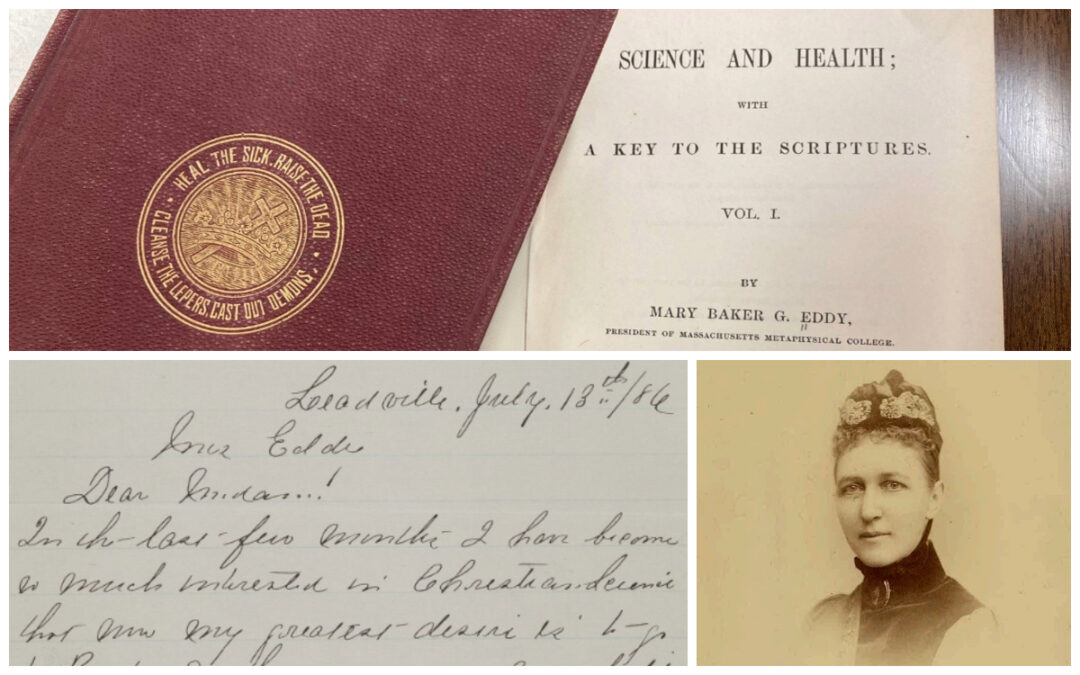 HEAL THE SICK. RAISE THE DEAD. CLEANSE THE LEPERS. CAST OUT DEMONS.
SCIENCE AND HEALTH;
WITH
A KEY TO THE SCRIPTURES.
VOL. I.
BY
MARY BAKER G. EDDY,
PRESIDENT OF MASSACHUSETTS METAPHYSICAL COLLEGE.
Leadville, July, 13th/86
Mrs Eddy
Dear Madam!
In the last few months I have become
so much interested in Christian Science
that now my greatest desire is to go
to